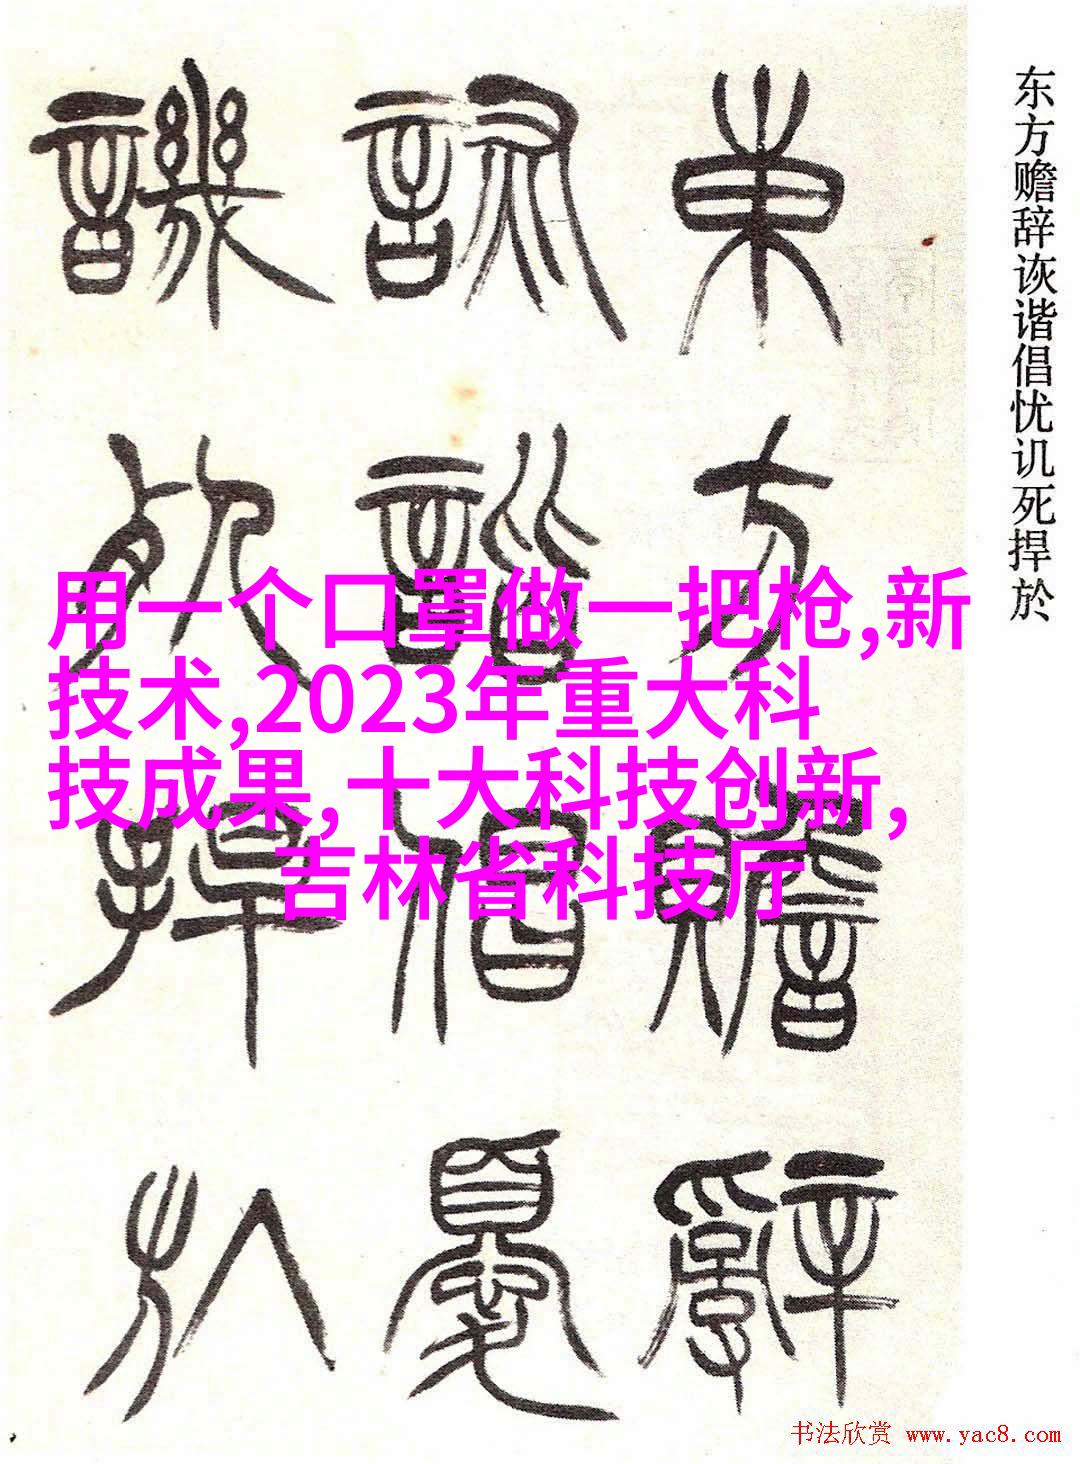 東方贍辭
詼諧倡憂
譏死捍於
东方赡辞诙谐倡忧讥死捍於
用一个口罩做一把枪,新
技术,2023年重大科
技成果,十大科技创新,
吉林省科技厅
书法欣赏 www.yac8.com